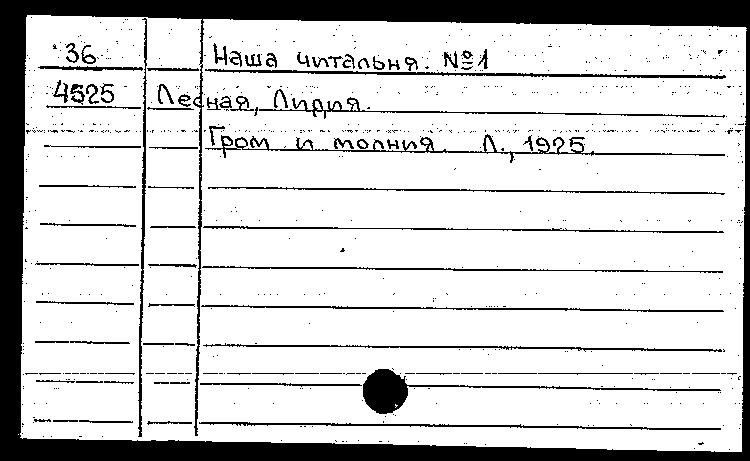 36 Наша читальня. №1
4525 Лесная, Лидия.
Гром и молния. Л., 1925.